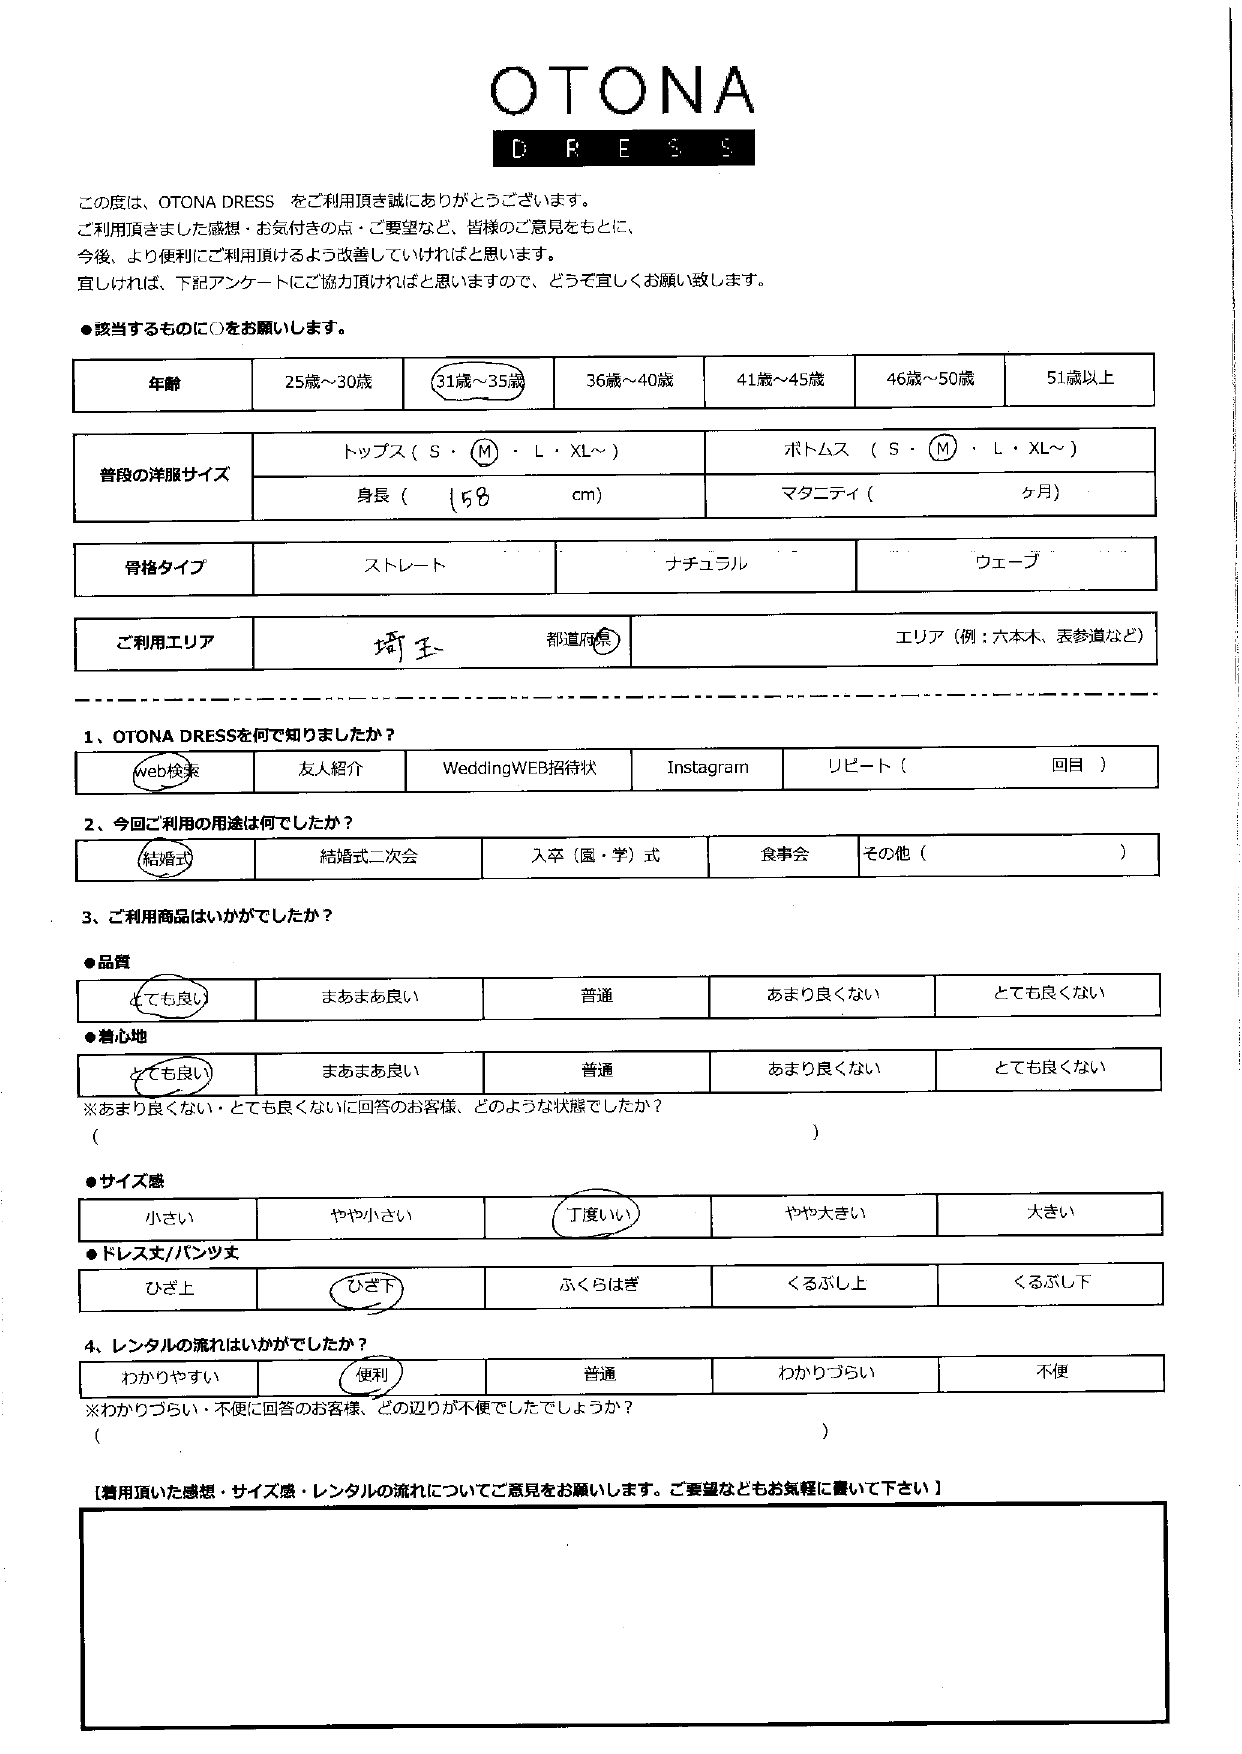 OTONA
DRESS
この度は、OTONA DRESS　をご利用頂き誠にありがとうございます。
ご利用頂きました感想・お気付きの点・ご要望など、皆様のご意見をもとに、
今後、より便利にご利用頂けるよう改善していければと思います。
宜しければ、下記アンケートにご協力頂ければと思いますので、どうぞ宜しくお願い致します。
●該当するものに○をお願いします。
年齢 25歳～30歳 31歳～35歳 36歳～40歳 41歳～45歳 46歳～50歳 51歳以上
普段の洋服サイズ トップス ( S ・ M ・ L ・ XL～ ) ボトムス ( S ・ M ・ L ・ XL～ )
身長 ( 158 cm) マタニティ ( ヶ月)
骨格タイプ ストレート ナチュラル ウェーブ
ご利用エリア 埼玉 都道府県 エリア（例：六本木、表参道など）
1、OTONA DRESSを何で知りましたか？
web検索 友人紹介 WeddingWEB招待状 Instagram リピート（ 回目 ）
2、今回ご利用の用途は何でしたか？
結婚式 結婚式二次会 入卒（園・学）式 食事会 その他（ ）
3、ご利用商品はいかがでしたか？
●品質
とても良い まあまあ良い 普通 あまり良くない とても良くない
●着心地
とても良い まあまあ良い 普通 あまり良くない とても良くない
※あまり良くない・とても良くないに回答のお客様、どのような状態でしたか？
（ ）
●サイズ感
小さい やや小さい 丁度いい やや大きい 大きい
●ドレス丈/パンツ丈
ひざ上 ひざ下 ふくらはぎ くるぶし上 くるぶし下
4、レンタルの流れはいかがでしたか？
わかりやすい 便利 普通 わかりづらい 不便
※わかりづらい・不便に回答のお客様、どの辺りが不便でしたでしょうか？
（ ）
【着用頂いた感想・サイズ感・レンタルの流れについてご意見をお願いします。ご要望などもお気軽に書いて下さい 】